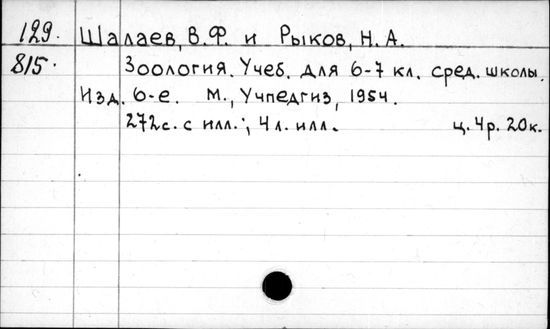 129. Шалаев, В.Ф. и Рыков, Н.А.
815. Зоология. Учеб. для 6-7 кл. сред. школы.
Изд. 6-е. М., Учпедгиз, 1954.
272с. с илл.; 4 л. илл. ц. 4р. 20к.